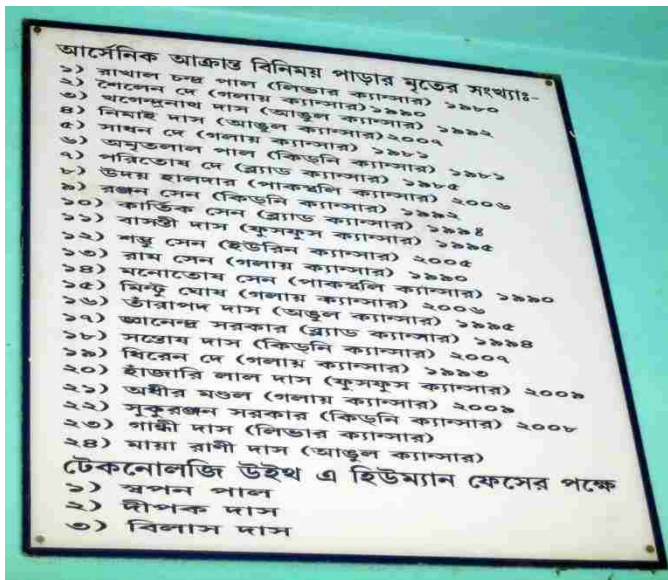 আর্সেনিক আক্রান্ত বিনিময় পাড়ার মৃতের সংখ্যাঃ-
১) রাখাল চন্দ্র পাল (লিভার ক্যান্সার) ১৯৮০
২) শৈলেন দে (গলায় ক্যান্সার) ১৯৯০
৩) খগেন্দ্রনাথ দাস (আঙুল ক্যান্সার) ১৯৯২
৪) নিমাই দাস (আঙুল ক্যান্সার) ২০০৭
৫) সাধন দে (গলায় ক্যান্সার) ১৯৮১
৬) অমৃতলাল পাল (কিড়নি ক্যান্সার) ১৯৮১
৭) পরিতোষ দে (ব্ল্যাড ক্যান্সার) ১৯৮৫
৮) উদয় হালদার (পাকস্থলি ক্যান্সার) ২০০৬
৯) রঞ্জন সেন (কিড়নি ক্যান্সার) ১৯৯২
১০) কার্ত্তিক সেন (ব্ল্যাড ক্যান্সার) ১৯৯৪
১১) বাসন্তী দাস (ফুসফুস ক্যান্সার) ১৯৯৫
১২) শম্ভু সেন (ইউরিন ক্যান্সার) ২০০৫
১৩) রাম সেন (গলায় ক্যান্সার) ১৯৯০
১৪) মনোতোষ সেন (পাকস্থলি ক্যান্সার) ১৯৯০
১৫) মিন্টু ঘোষ (গলায় ক্যান্সার) ২০০৬
১৬) তাঁরাপদ দাস (অঙুল ক্যান্সার) ১৯৯৫
১৭) জ্ঞানেন্দ্র সরকার (ব্ল্যাড ক্যান্সার) ১৯৯৪
১৮) সন্তোষ দাস (কিড়নি ক্যান্সার) ২০০৭
১৯) ধিরেন দে (গলায় ক্যান্সার) ১৯৯৩
২০) হাঁজারি লাল দাস (ফুসফুস ক্যান্সার) ২০০৯
২১) অধীর মণ্ডল (গলায় ক্যান্সার) ২০০৯
২২) সুকুরঞ্জন সরকার (কিড়নি ক্যান্সার) ২০০৮
২৩) গান্ধী দাস (লিভার ক্যান্সার)
২৪) মায়া রাণী দাস (আঙুল ক্যান্সার)
টেকনোলজি উইথ এ হিউম্যান ফেসের পক্ষে
১) স্বপন পাল
২) দীপক দাস
৩) বিলাস দাস